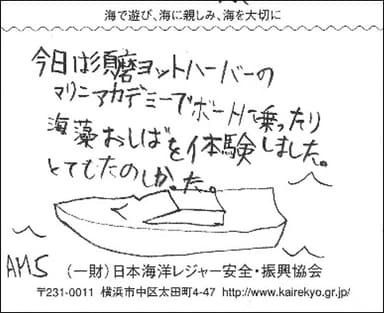 海で遊び、海に親しみ、海を大切に
今日は須磨ヨットハーバーの
マリンアカデミーでボートに乗ったり
海藻おしばを体験しました。
とてもたのしかった。
AMS
(一財)日本海洋レジャー安全・振興協会
〒231-0011 横浜市中区太田町4-47 http://www.kairekyo.gr.jp/